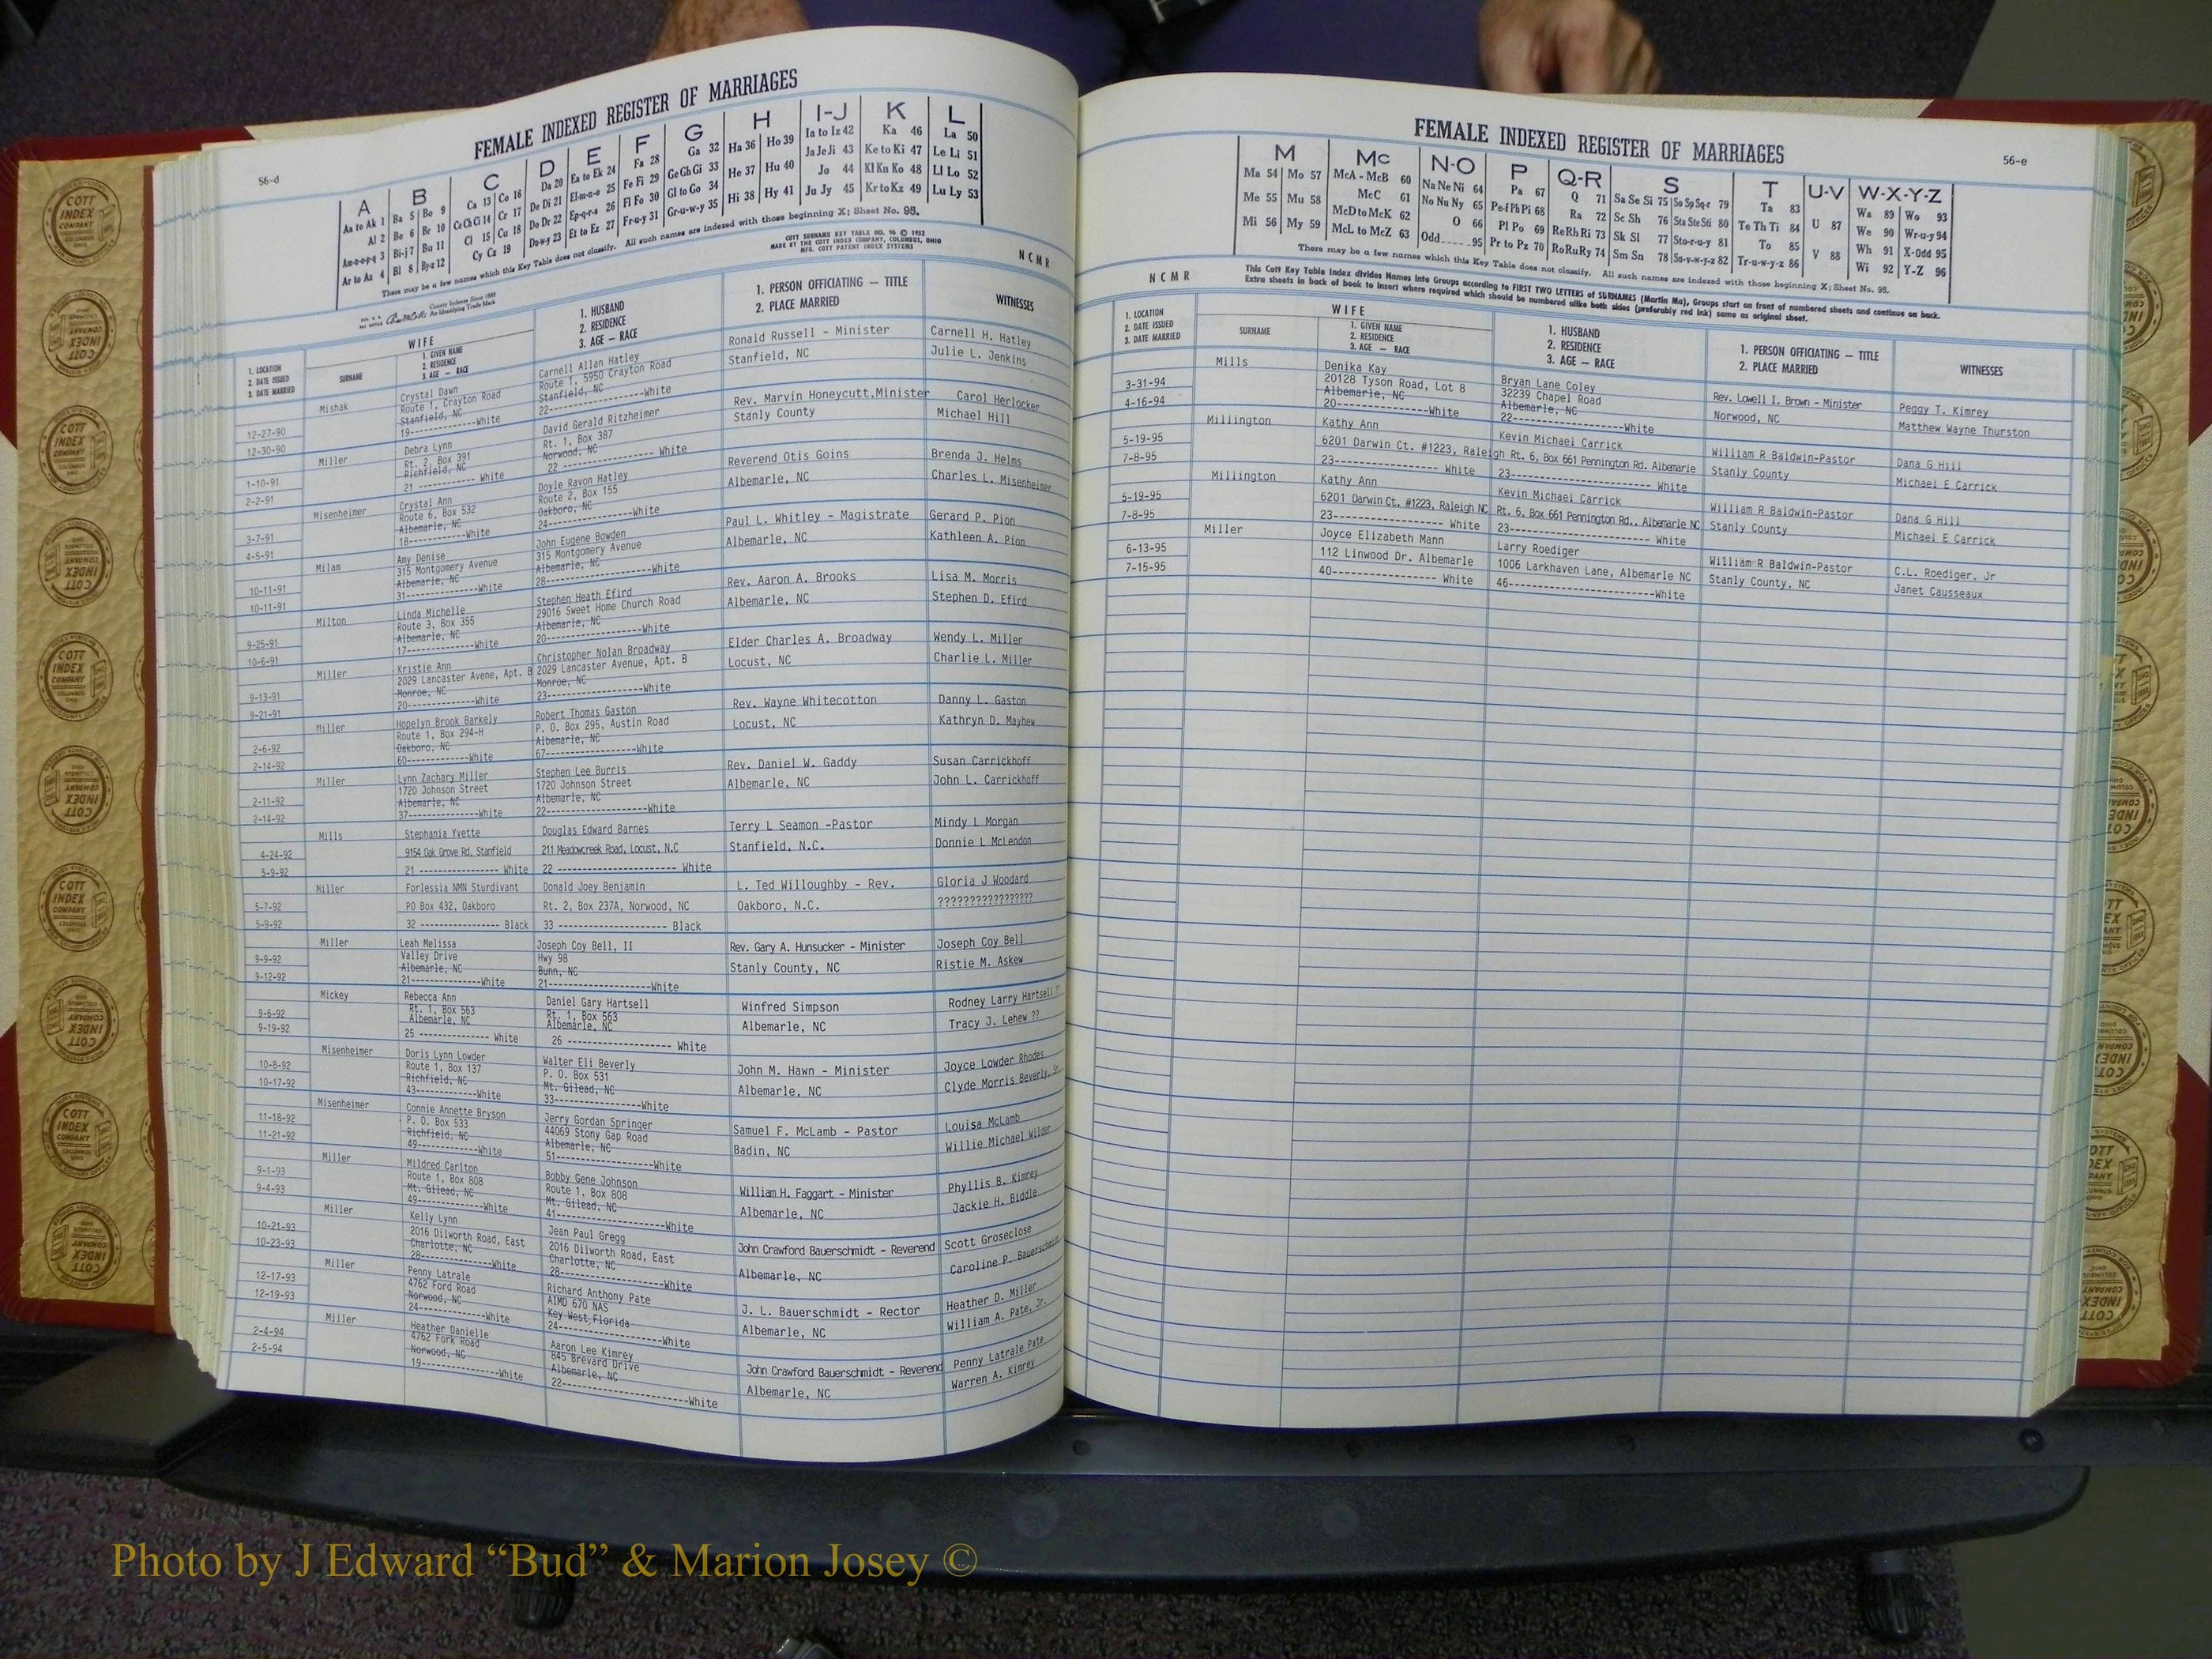 56-d
FEMALE INDEXED REGISTER OF MARRIAGES
A B C D E F G H I-J K L
Aa to Ak 1 Ba 5 Bo 9 Ca 13 Co 16 Da 20 Ea to Ek 24 Fa 28 Ga 32 Ha 36 Ho 39 Ia to Iz 42 Ka 46 La 50
Al 2 Be 6 Br 10 Ce Ch Ci 14 Cr 17 De Di 21 El-m-n-o 25 Fe Fi 29 Ge Gh Gi 33 He 37 Hu 40 Ja Je Ji 43 Ke to Ki 47 Le Li 51
Am-n-o-p-q 3 Bi-j 7 Bu 11 Cl 15 Cu 18 Do Dr 22 Ep-q-r-s 26 Fl Fo 30 Gl to Go 34 Hi 38 Hy 41 Jo 44 Kl Kn Ko 48 Ll Lo 52
Ar to Az 4 Bl 8 By-z 12 Cy Cz 19 Du-w-y 23 Et to Ez 27 Fr-u-y 31 Gr-u-w-y 35 Ju Jy 45 Kr to Kz 49 Lu Ly 53
There may be a few names which this Key Table does not classify. All such names are indexed with those beginning X; Sheet No. 95.
County Indexes Since 1888
An Identifying Trade Mark
COTT SURNAME KEY TABLE NO. 96 © 1952
MADE BY THE COTT INDEX COMPANY, COLUMBUS, OHIO
MFG. COTT PATENT INDEX SYSTEMS
N C M R
1. LOCATION
2. DATE ISSUED
3. DATE MARRIED
WIFE
SURNAME
1. GIVEN NAME
2. RESIDENCE
3. AGE — RACE
1. HUSBAND
2. RESIDENCE
3. AGE — RACE
1. PERSON OFFICIATING — TITLE
2. PLACE MARRIED
WITNESSES
12-27-90
12-30-90
Mishak
Crystal Dawn
Route 1, Crayton Road
Stanfield, NC
19------------White
Carnell Allan Hatley
Route 1, 5950 Crayton Road
Stanfield, NC
22------------------White
Ronald Russell - Minister
Stanfield, NC
Carnell H. Hatley
Julie L. Jenkins
1-10-91
2-2-91
Miller
Debra Lynn
Rt. 2, Box 391
Richfield, NC
21 ------------ White
David Gerald Ritzheimer
Rt. 1, Box 387
Norwood, NC
22 ----------------- White
Rev. Marvin Honeycutt,Minister
Stanly County
Carol Herlocker
Michael Hill
3-7-91
4-5-91
Misenheimer
Crystal Ann
Route 6, Box 532
Albemarle, NC
18------------White
Doyle Ravon Hatley
Route 2, Box 155
Oakboro, NC
24-----------------White
Reverend Otis Goins
Albemarle, NC
Brenda J. Helms
Charles L. Misenheimer
10-11-91
10-11-91
Milam
Amy Denise
315 Montgomery Avenue
Albemarle, NC
31--------------White
John Eugene Bowden
315 Montgomery Avenue
Albemarle, NC
28--------------------White
Paul L. Whitley - Magistrate
Albemarle, NC
Gerard P. Pion
Kathleen A. Pion
9-25-91
10-6-91
Milton
Linda Michelle
Route 3, Box 355
Albemarle, NC
17-------------White
Stephen Heath Efird
29016 Sweet Home Church Road
Albemarle, NC
20------------------White
Rev. Aaron A. Brooks
Albemarle, NC
Lisa M. Morris
Stephen D. Efird
9-13-91
9-21-91
Miller
Kristie Ann
2029 Lancaster Avene, Apt. B
Monroe, NC
20-------------White
Christopher Nolan Broadway
2029 Lancaster Avenue, Apt. B
Monroe, NC
23------------------White
Elder Charles A. Broadway
Locust, NC
Wendy L. Miller
Charlie L. Miller
2-6-92
2-14-92
Miller
Hopelyn Brook Barkely
Route 1, Box 294-H
Oakboro, NC
60-------------White
Robert Thomas Gaston
P. O. Box 295, Austin Road
Albemarle, NC
67-----------------White
Rev. Wayne Whitecotton
Locust, NC
Danny L. Gaston
Kathryn D. Mayhew
2-11-92
2-14-92
Miller
Lynn Zachary Miller
1720 Johnson Street
Albemarle, NC
37--------------White
Stephen Lee Burris
1720 Johnson Street
Albemarle, NC
22-------------------White
Rev. Daniel W. Gaddy
Albemarle, NC
Susan Carrickhoff
John L. Carrickhoff
4-24-92
5-9-92
Mills
Stephania Yvette
9154 Oak Grove Rd, Stanfield
21 --------------- White
Douglas Edward Barnes
211 Meadowcreek Road, Locust, N.C
22 ---------------------- White
Terry L Seamon -Pastor
Stanfield, N.C.
Mindy L Morgan
Donnie L McLendon
5-7-92
5-9-92
Miller
Forlessia NMN Sturdivant
PO Box 432, Oakboro
32 --------------- Black
Donald Joey Benjamin
Rt. 2, Box 237A, Norwood, NC
33 -------------------- Black
L. Ted Willoughby - Rev.
Oakboro, N.C.
Gloria J Woodard
?????????????????
9-9-92
9-12-92
Miller
Leah Melissa
Valley Drive
Albemarle, NC
21-------------White
Joseph Coy Bell, II
Hwy 98
Bunn, NC
21-------------------White
Rev. Gary A. Hunsucker - Minister
Stanly County, NC
Joseph Coy Bell
Ristie M. Askew
9-6-92
9-19-92
Mickey
Rebecca Ann
Rt. 1, Box 563
Albemarle, NC
25 --------------- White
Daniel Gary Hartsell
Rt. 1, Box 563
Albemarle, NC
26 ------------------- White
Winfred Simpson
Albemarle, NC
Rodney Larry Hartsell ??
Tracy J. Lehew ??
10-8-92
10-17-92
Misenheimer
Doris Lynn Lowder
Route 1, Box 137
Richfield, NC
43------------White
Walter Eli Beverly
P. O. Box 531
Mt. Gilead, NC
33----------------White
John M. Hawn - Minister
Albemarle, NC
Joyce Lowder Rhodes
Clyde Morris Beverly, Jr.
11-18-92
11-21-92
Misenheimer
Connie Annette Bryson
P. O. Box 533
Richfield, NC
49------------White
Jerry Gordan Springer
44069 Stony Gap Road
Albemarle, NC
51------------------White
Samuel F. McLamb - Pastor
Badin, NC
Louisa McLamb
Willie Michael Wilder
9-1-93
9-4-93
Miller
Mildred Carlton
Route 1, Box 808
Mt. Gilead, NC
49--------------White
Bobby Gene Johnson
Route 1, Box 808
Mt. Gilead, NC
41--------------------White
William H. Faggart - Minister
Albemarle, NC
Phyllis B. Kimrey
Jackie H. Biddle
10-21-93
10-23-93
Miller
Kelly Lynn
2016 Dilworth Road, East
Charlotte, NC
28--------------White
Jean Paul Gregg
2016 Dilworth Road, East
Charlotte, NC
28-------------------White
John Crawford Bauerschmidt - Reverend
Albemarle, NC
Scott Groseclose
Caroline P. Bauerschmidt
12-17-93
12-19-93
Miller
Penny Latrale
4762 Ford Road
Norwood, NC
24-------------White
Richard Anthony Pate
AIMD 670 NAS
Key West,Florida
24-------------------White
J. L. Bauerschmidt - Rector
Albemarle, NC
Heather D. Miller
William A. Pate, Jr.
2-4-94
2-5-94
Miller
Heather Danielle
4762 Fork Road
Norwood, NC
19---------------White
Aaron Lee Kimrey
845 Brevard Drive
Albemarle, NC
22----------------------White
John Crawford Bauerschmidt - Reverend
Albemarle, NC
Penny Latrale Pate
Warren A. Kimrey
56-e
FEMALE INDEXED REGISTER OF MARRIAGES
M Mc N-O P Q-R S T U-V W-X-Y-Z
Ma 54 Mo 57 McA - McB 60 Na Ne Ni 64 Pa 67 Q 71 Sa Se Si 75 So Sp Sq-r 79 Ta 83 U 87 Wa 89 Wo 93
Me 55 Mu 58 McC 61 No Nu Ny 65 Pe-f Ph Pi 68 Ra 72 Sc Sh 76 Sta Ste Sti 80 Te Th Ti 84 V 88 We 90 Wr-u-y 94
Mi 56 My 59 McD to McK 62 O 66 Pl Po 69 Re Rh Ri 73 Sk Sl 77 Sto-r-u-y 81 To 85 Wh 91 X-Odd 95
McL to McZ 63 Odd 95 Pr to Pz 70 Ro Ru Ry 74 Sm Sn 78 Su-v-w-y-z 82 Tr-u-w-y-z 86 Wi 92 Y-Z 96
There may be a few names which this Key Table does not classify. All such names are indexed with those beginning X; Sheet No. 95.
This Cott Key Table Index divides Names into Groups according to FIRST TWO LETTERS of SURNAMES (Martin Ma), Groups start on front of numbered sheets and continue on back.
Extra sheets in back of book to insert where required which should be numbered alike both sides (preferably red ink) same as original sheet.
N C M R
1. LOCATION
2. DATE ISSUED
3. DATE MARRIED
WIFE
SURNAME
1. GIVEN NAME
2. RESIDENCE
3. AGE — RACE
1. HUSBAND
2. RESIDENCE
3. AGE — RACE
1. PERSON OFFICIATING — TITLE
2. PLACE MARRIED
WITNESSES
3-31-94
4-16-94
Mills
Denika Kay
20128 Tyson Road, Lot 8
Albemarle, NC
20----------------White
Bryan Lane Coley
32239 Chapel Road
Albemarle, NC
22-------------------White
Rev. Lowell I. Brown - Minister
Norwood, NC
Peggy T. Kimrey
Matthew Wayne Thurston
5-19-95
7-8-95
Millington
Kathy Ann
6201 Darwin Ct. #1223, Raleigh
23------------------ White
Kevin Michael Carrick
Rt. 6, Box 661 Pennington Rd. Albemarle
23---------------------- White
William R Baldwin-Pastor
Stanly County
Dana G Hill
Michael E Carrick
5-19-95
7-8-95
Millington
Kathy Ann
6201 Darwin Ct. #1223, Raleigh NC
23------------------- White
Kevin Michael Carrick
Rt. 6, Box 661 Pennington Rd., Albemarle NC
23---------------------- White
William R Baldwin-Pastor
Stanly County
Dana G Hill
Michael E Carrick
6-13-95
7-15-95
Miller
Joyce Elizabeth Mann
112 Linwood Dr. Albemarle
40------------------ White
Larry Roediger
1006 Larkhaven Lane, Albemarle NC
46-----------------------White
William R Baldwin-Pastor
Stanly County, NC
C.L. Roediger, Jr
Janet Causseaux
COTT
INDEX
COMPANY
Photo by J Edward “Bud” & Marion Josey ©